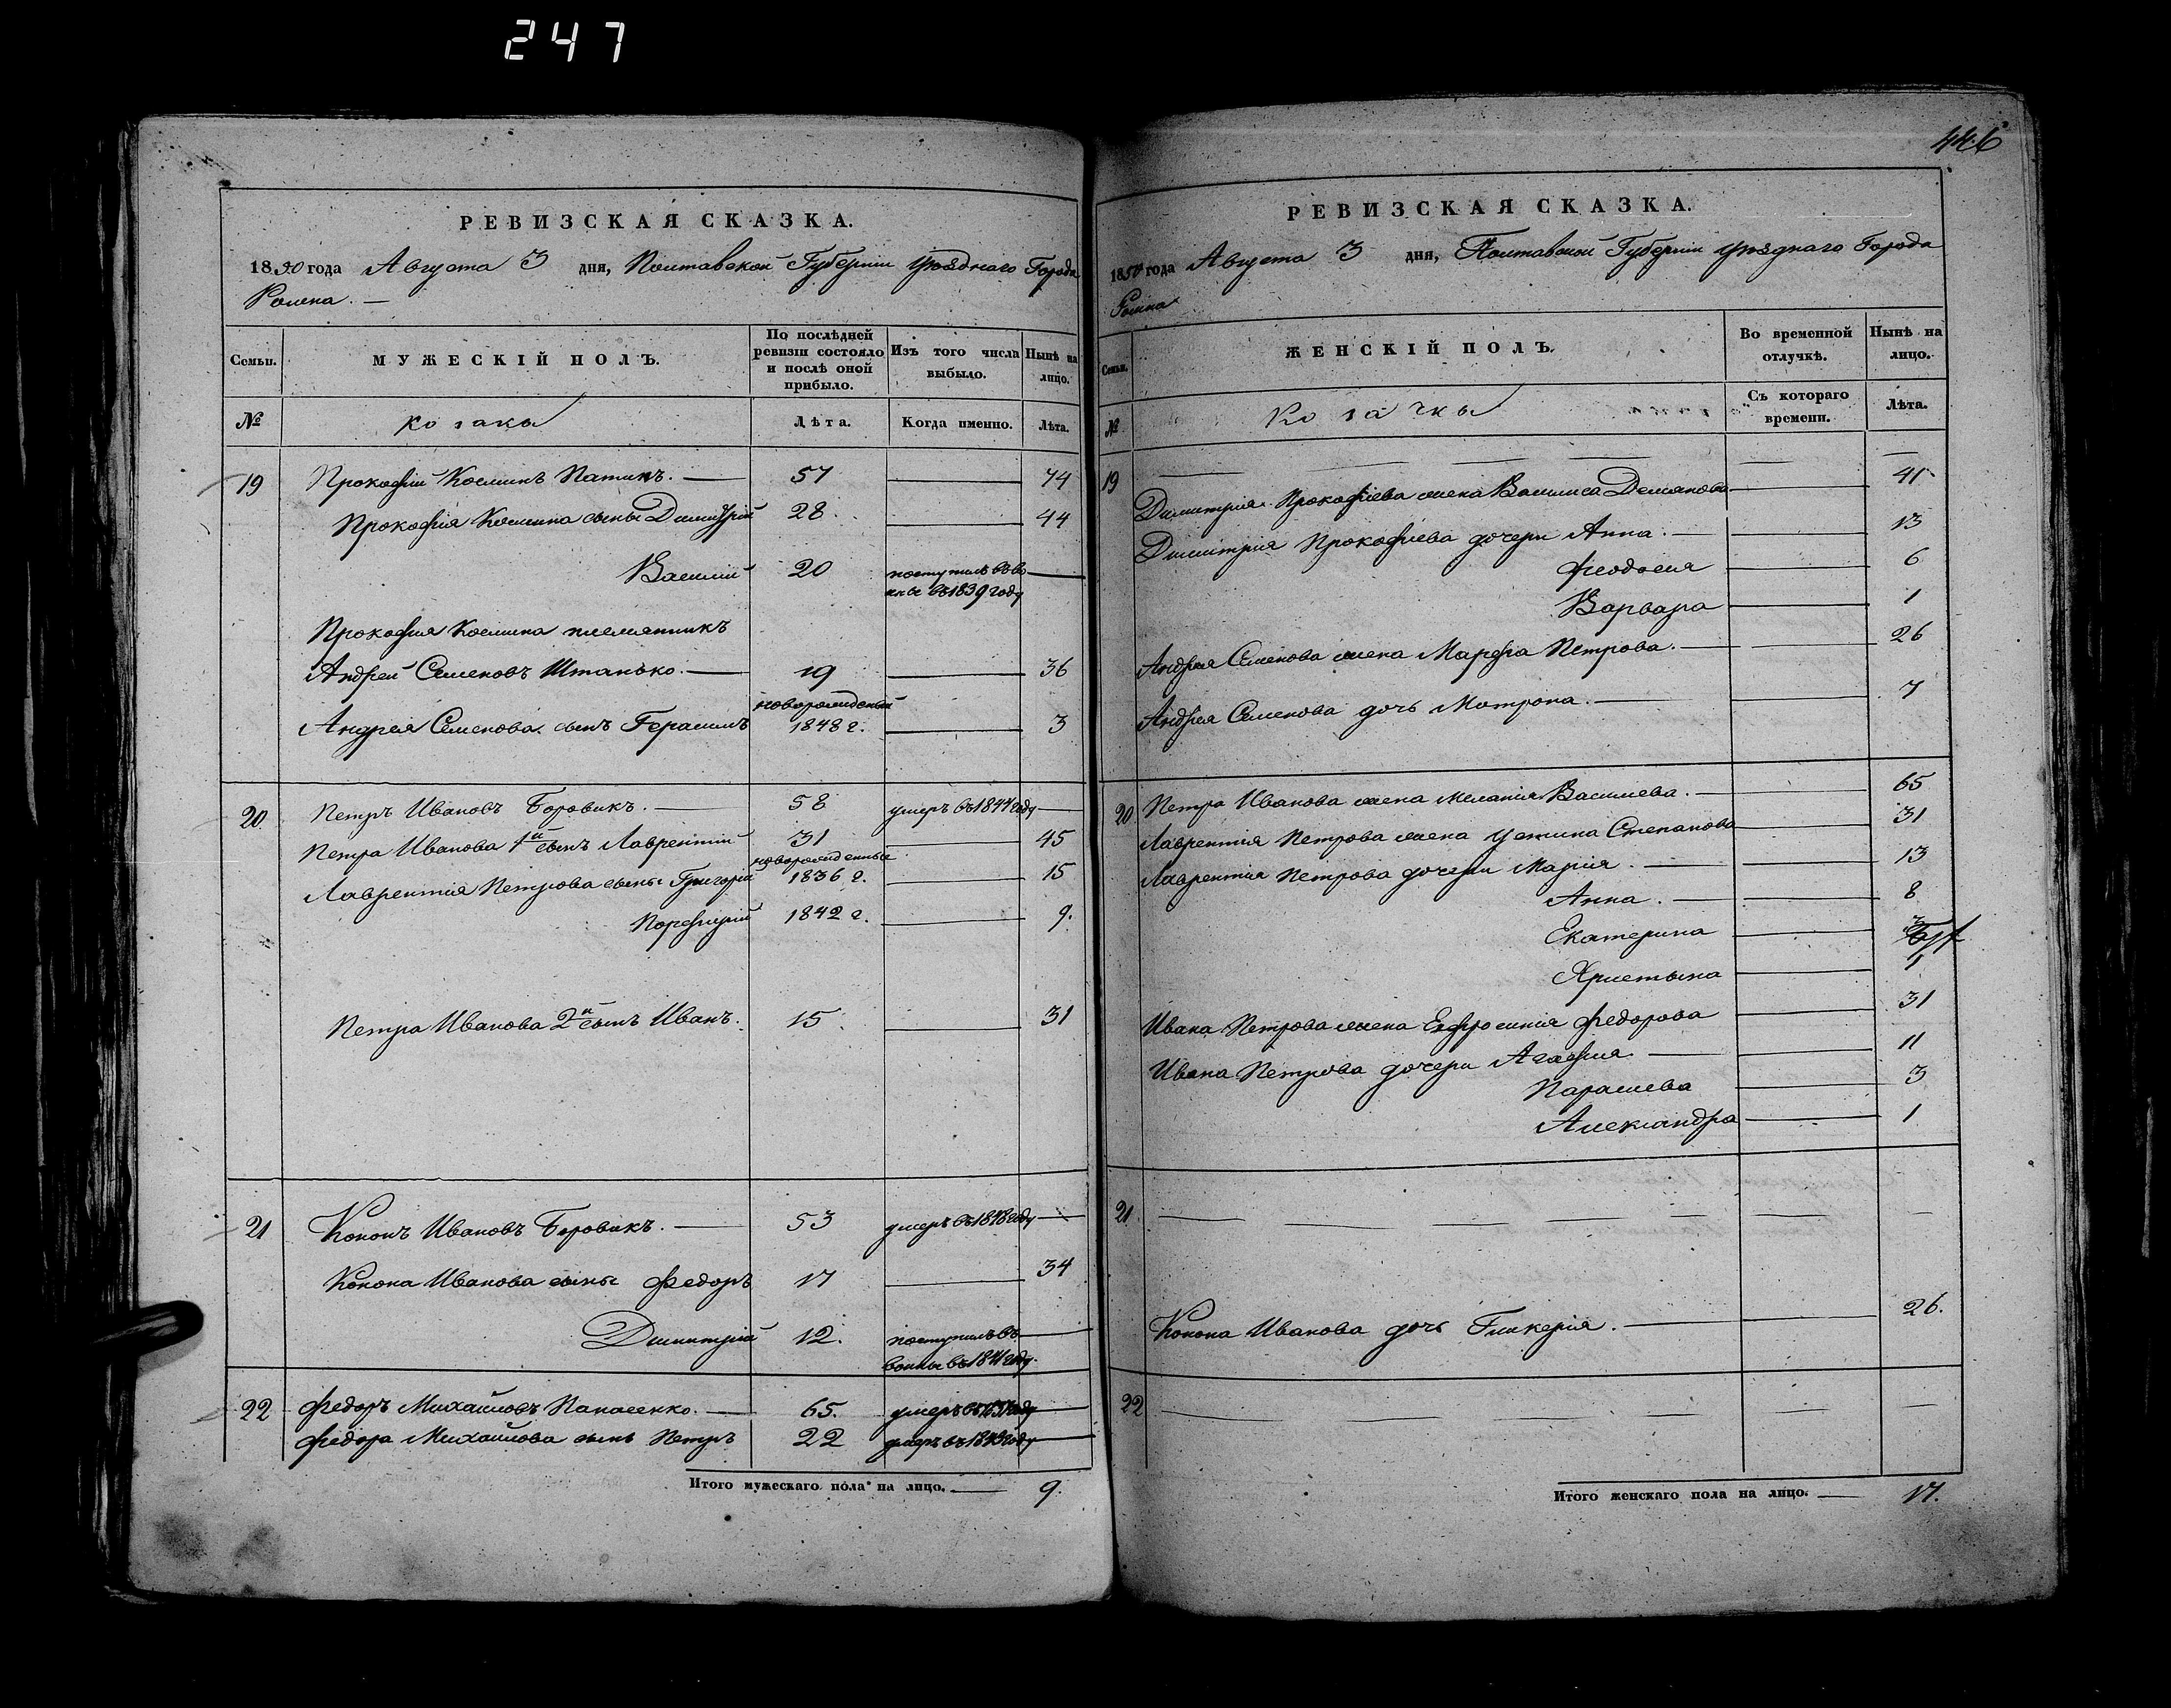 247
446
РЕВИЗСКАЯ СКАЗКА.
1850 года Августа 3 дня, Полтавской Губерніи уѣзднаго Города
Ромна. —
Семьи.
МУЖЕСКІЙ ПОЛЪ.
По послѣдней ревизіи состояло и послѣ оной прибыло.
Изъ того числа выбыло.
Нынѣ на лицо.
№
козаки
Лѣта.
Когда именно.
Лѣта.
19 Прокофій Козминъ Патинъ. — 57 — 74
Прокофія Козмина сыны Димитрій 28 — 44
Василій 20 поступилъ въ во
ины въ 1839 году —
Прокофія Козмина племянникъ
Андрей Семеновъ Штанько. — 19 — 36
новорожденный
Андрея Семенова сынъ Герасимъ 1848 г. — 3
20 Петръ Ивановъ Боровикъ. — 58 умеръ въ 1844 году —
Петра Иванова 1й сынъ Лаврентій 31 — 45
новорожденные
Лаврентія Петрова сыны Григорій 1836 г. — 15
Порфирій 1842 г. — 9.
Петра Иванова 2й сынъ Иванъ. 15 — 31
21 Кононъ Ивановъ Боровикъ. — 53 умеръ въ 1848 году —
Конона Иванова сыны Федоръ 17 — 34
Димитрій 12. поступилъ въ —
воины въ 1841 году.
22 Федоръ Михайловъ Панасенко. — 65. умеръ въ году —
Федора Михайлова сынъ Петръ 22 умеръ въ 1843 году —
Итого мужескаго пола на лицо. — 9.
РЕВИЗСКАЯ СКАЗКА.
1850 года Августа 3 дня, Полтавской Губерніи уѣзднаго Города
Ромна
Семьи.
ЖЕНСКІЙ ПОЛЪ.
Во временной отлучкѣ.
Нынѣ на лицо.
№
козачки
Съ котораго времени.
Лѣта.
19 — — — — —
Димитрія Прокофіева жена Василиса Демянова — 41
Димитрія Прокофіева дочери Анна. — 13
Феодосія — 6
Варвара — 1
Андрея Семенова жена Марфа Петрова. — 26
Андрея Семенова дочь Мотрона. — 7
20 Петра Иванова жена Меланія Василева. — 65
Лаврентія Петрова жена Устина Степанова — 31
Лаврентія Петрова дочери Марія. — 13
Анна. — 8
Екатерина —
Христина — 1
Ивана Петрова жена Евфросинія Федорова — 31
Ивана Петрова дочери Агафія. — 11
Парасѣва — 3
Александра — 1
21. — — — — —
Конона Иванова дочь Гликерія. — 26.
22 — — — — —
Итого женскаго пола на лицо. — 17.